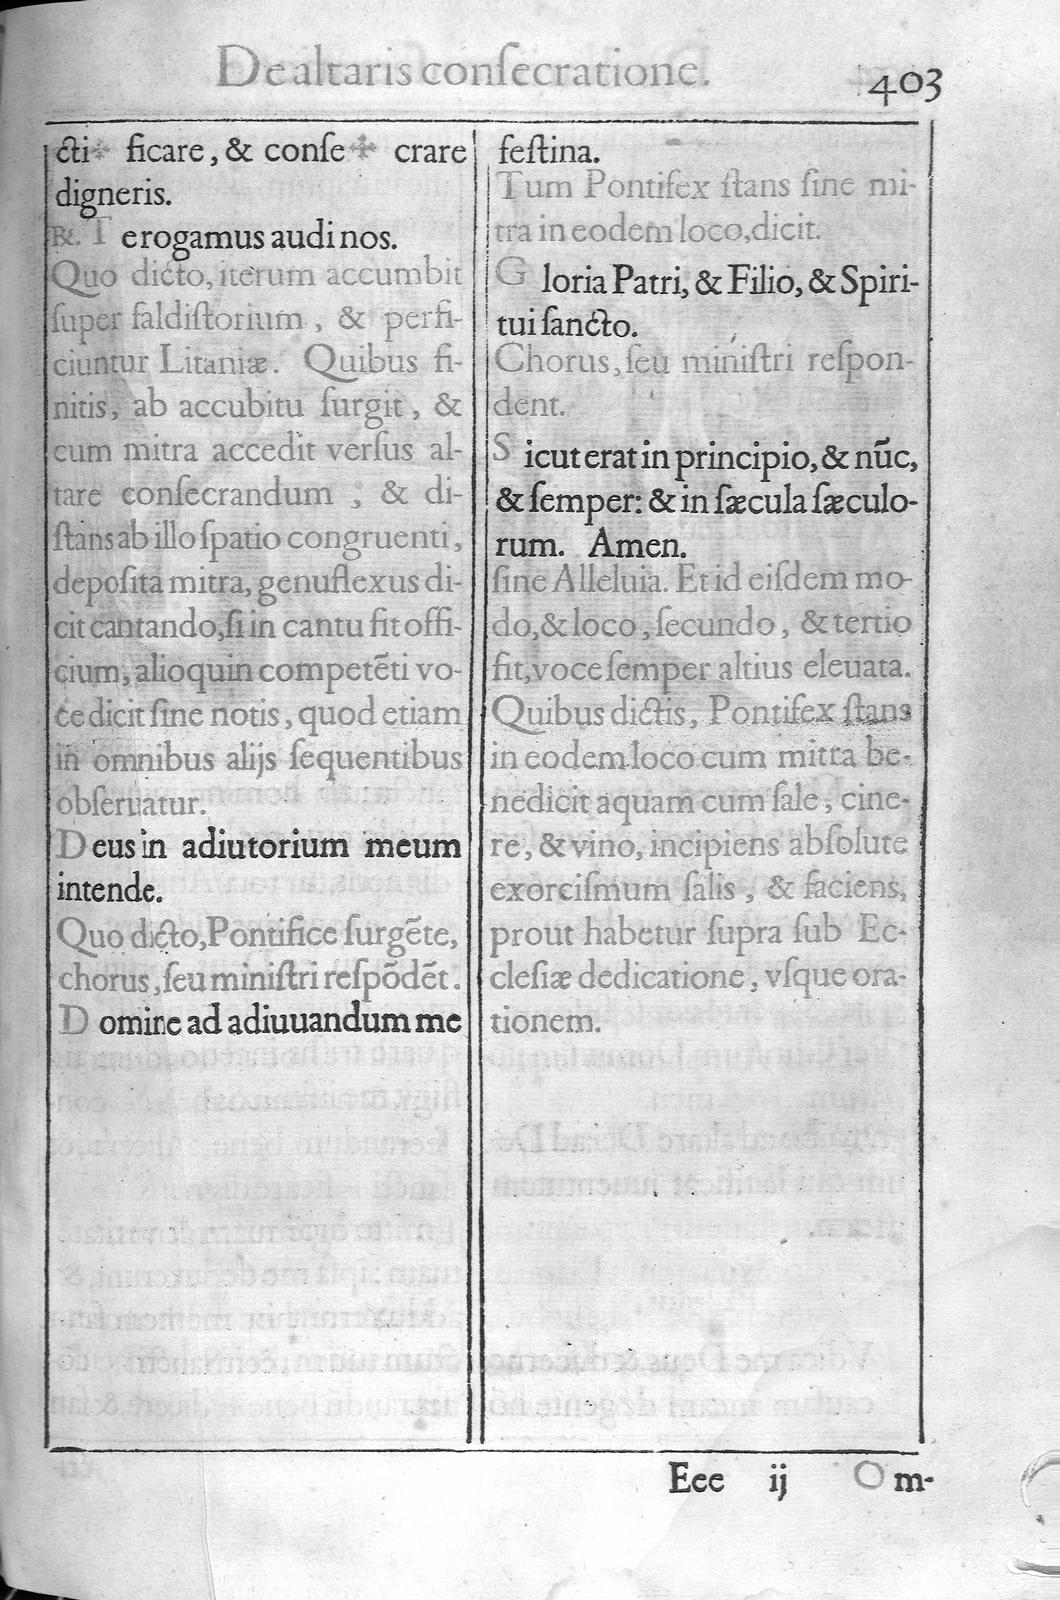 De altaris conſecratione.
403
cti✠ ficare, & conſe✠ crare
digneris.
℟. Terogamus audi nos.
Quo dicto, iterum accumbit
ſuper faldiſtorium, & perfi-
ciuntur Litaniæ. Quibus fi-
nitis, ab accubitu ſurgit, &
cum mitra accedit verſus al-
tare conſecrandum, & di-
ſtans ab illo ſpatio congruenti,
depoſita mitra, genuflexus di-
cit cantando, ſi in cantu fit offi-
cium, alioquin competẽti vo-
ce dicit ſine notis, quod etiam
in omnibus alijs ſequentibus
obſeruatur.
Deus in adiutorium meum
intende.
Quo dicto, Pontifice ſurgẽte,
chorus, ſeu miniſtri reſpõdẽt.
Domine ad adiuuandum me
feſtina.
Tum Pontifex ſtans ſine mi-
tra in eodem loco, dicit.
Gloria Patri, & Filio, & Spiri-
tui ſancto.
Chorus, ſeu miniſtri reſpon-
dent.
Sicut erat in principio, & nũc,
& ſemper: & in ſæcula ſæculo-
rum. Amen.
ſine Alleluia. Et id eiſdem mo-
do, & loco, ſecundo, & tertio
fit, voce ſemper altius eleuata.
Quibus dictis, Pontifex ſtans
in eodem loco cum mitra be-
nedicit aquam cum ſale, cine-
re, & vino, incipiens abſolute
exorciſmum ſalis, & faciens,
prout habetur ſupra ſub Ec-
cleſiæ dedicatione, vſque ora-
tionem.
Eee ij Om-